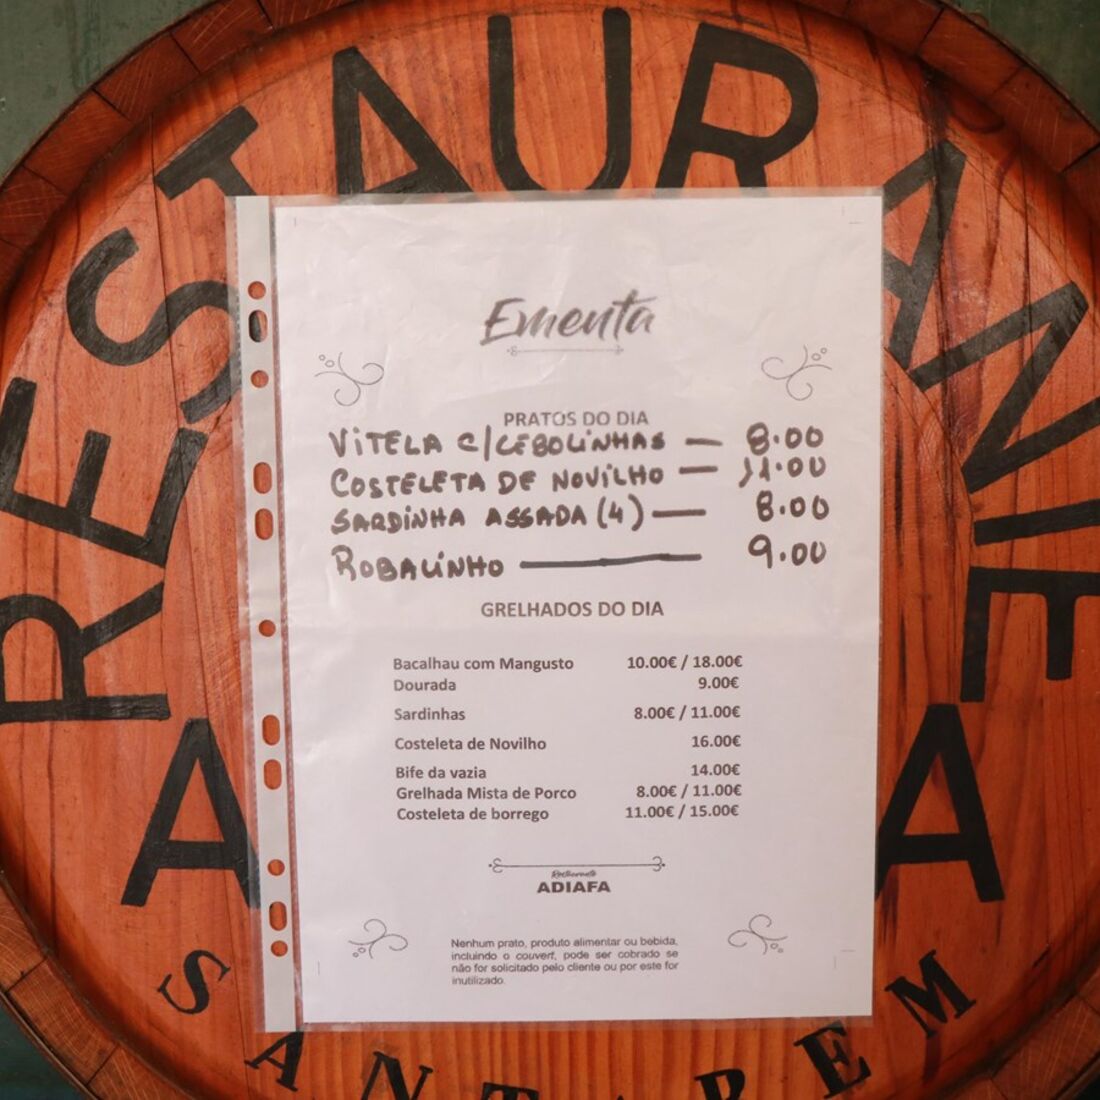 RESTAURANTE
Ementa
PRATOS DO DIA
VITELA C/CEBOLINHAS — 8.00
COSTELETA DE NOVILHO — 11.00
SARDINHA ASSADA (4) — 8.00
ROBALINHO — 9.00
GRELHADOS DO DIA
Bacalhau com Mangusto 10.00€ / 18.00€
Dourada 9.00€
Sardinhas 8.00€ / 11.00€
Costeleta de Novilho 16.00€
Bife da vazia 14.00€
Grelhada Mista de Porco 8.00€ / 11.00€
Costeleta de borrego 11.00€ / 15.00€
Restaurante
ADIAFA
Nenhum prato, produto alimentar ou bebida,
incluindo o couvert, pode ser cobrado se
não for solicitado pelo cliente ou por este for
inutilizado.
A A
SANTAREM